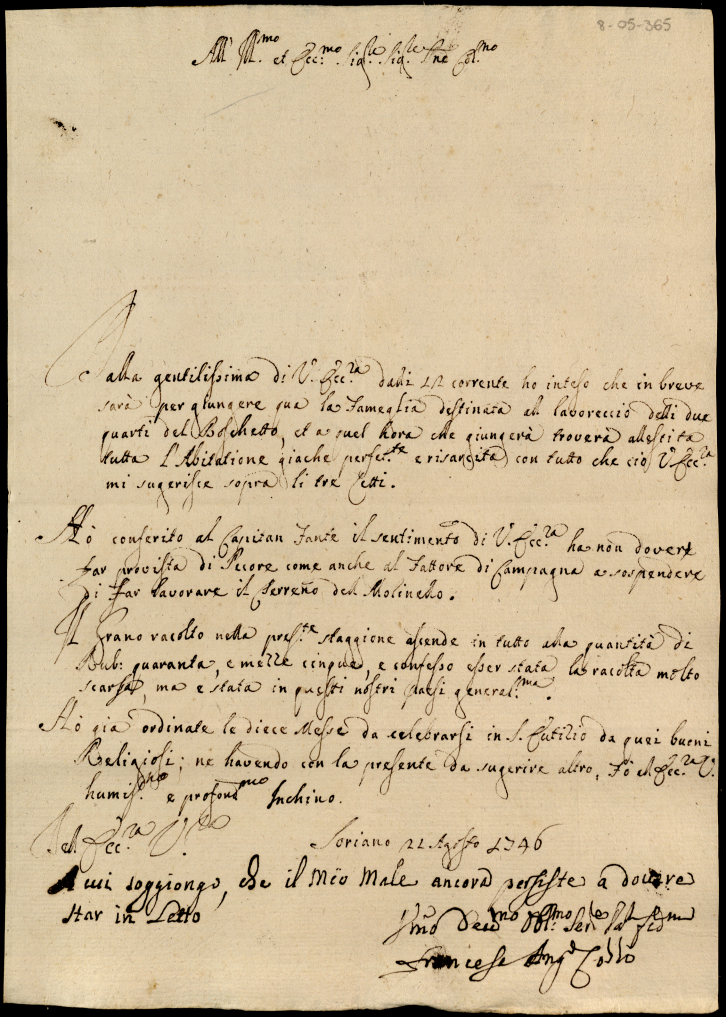 8-05-365
All' Ill.mo et Ecc.mo Sig.re Sig.re Pne Col.mo
Dalla gentilissima di V. Ecc.za dalli 12 corrente ho inteso che in breve
sarà per giungere qua la Fameglia destinata al lavoreccio delli due
quarti del Boschetto, et a quel hora che giungerà troverà allestita
tutta l'Abitatione giache perfet.te e risarcita con tutto che ciò V. Ecc.za
mi sugerisce sopra li tre Letti.
Ho conferito al Capitan Fante il sentimento di V. Ecc.za ha non dovere
far provista di Pecore come anche al Fattore di Campagna a sospendere
di far lavorare il Terreno del Molinello.
Il Grano racolto nella pres.te staggione ascende in tutto alla quantità di
Rub: quaranta, e mezze cinque, e confesso esser stata la racolta molto
scarsa, ma e stata in questi nostri paesi general.ma.
Ho già ordinate le diece Messe da celebrarsi in S. Eutilio da quei buoni
Religiosi; ne havendo con la presente da sugerire altro, Fò all'Ecc.za V.
humis.mo e profond.mo Inchino.
Dell' Ecc.za V.
Soriano 21 Agosto 1746
A cui soggiongo, che il Mio Male ancora persiste a dovere
star in Letto
Um.o Dev.mo Obl.mo Ser.e
Francesc Ang.o